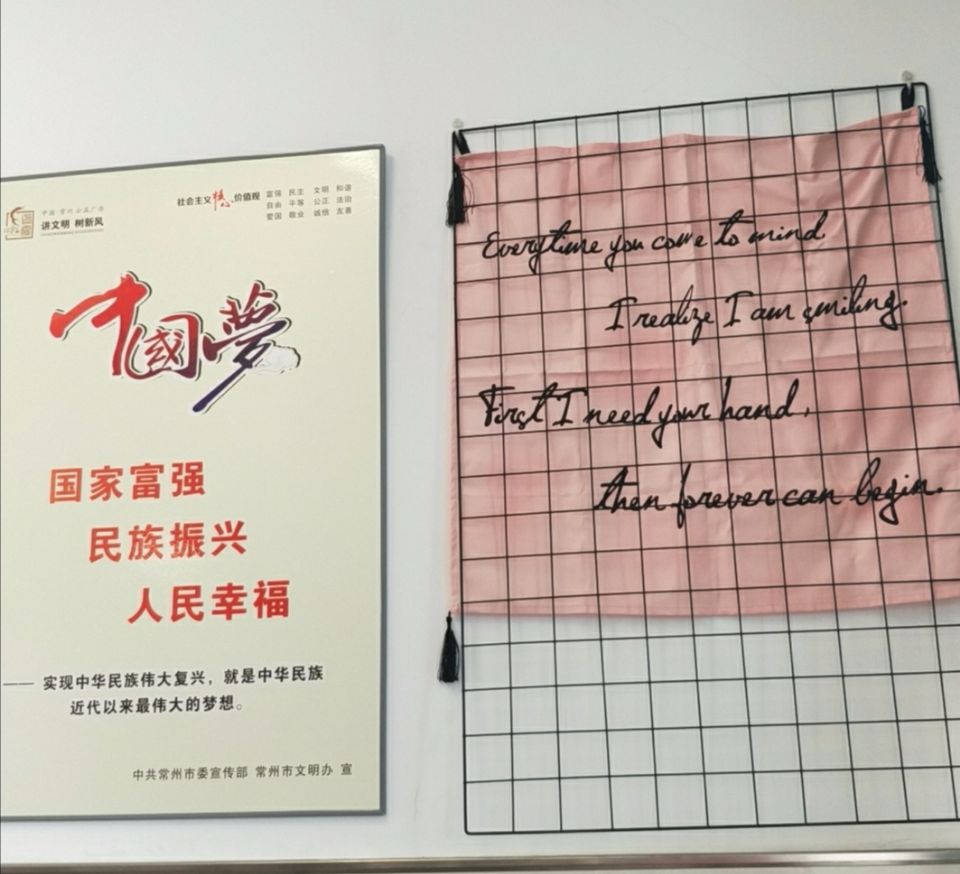 中国·常州公益广告
讲文明 树新风
社会主义核心价值观
富强 民主 文明 和谐
自由 平等 公正 法治
爱国 敬业 诚信 友善
中國夢
国家富强
民族振兴
人民幸福
—— 实现中华民族伟大复兴，就是中华民族
近代以来最伟大的梦想。
中共常州市委宣传部 常州市文明办 宣
Everytime you come to mind,
I realize I am smiling.
First I need your hand,
then forever can begin.